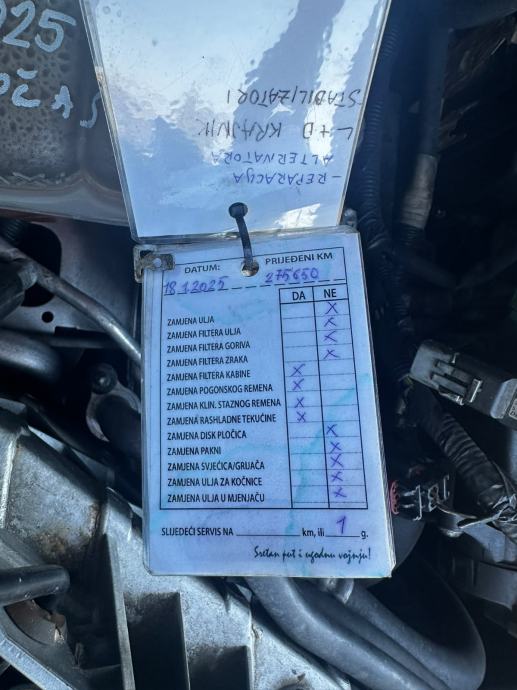 025
- REPARACIJA
ALTERNATORA
L+D KRAJNIK
STABILIZATORI
DATUM: PRIJEĐENI KM
18.1.2025 275650
DA NE
ZAMJENA ULJA X
ZAMJENA FILTERA ULJA X
ZAMJENA FILTERA GORIVA X
ZAMJENA FILTERA ZRAKA X
ZAMJENA FILTERA KABINE X
ZAMJENA POGONSKOG REMENA X
ZAMJENA KLIN. STAZNOG REMENA X
ZAMJENA RASHLADNE TEKUĆINE X
ZAMJENA DISK PLOČICA X
ZAMJENA PAKNI X
ZAMJENA SVJEĆICA/GRIJAČA X
ZAMJENA ULJA ZA KOČNICE X
ZAMJENA ULJA U MJENJAČU X
SLIJEDEĆI SERVIS NA ________ km, ili 1 g.
Sretan put i ugodnu vožnju!